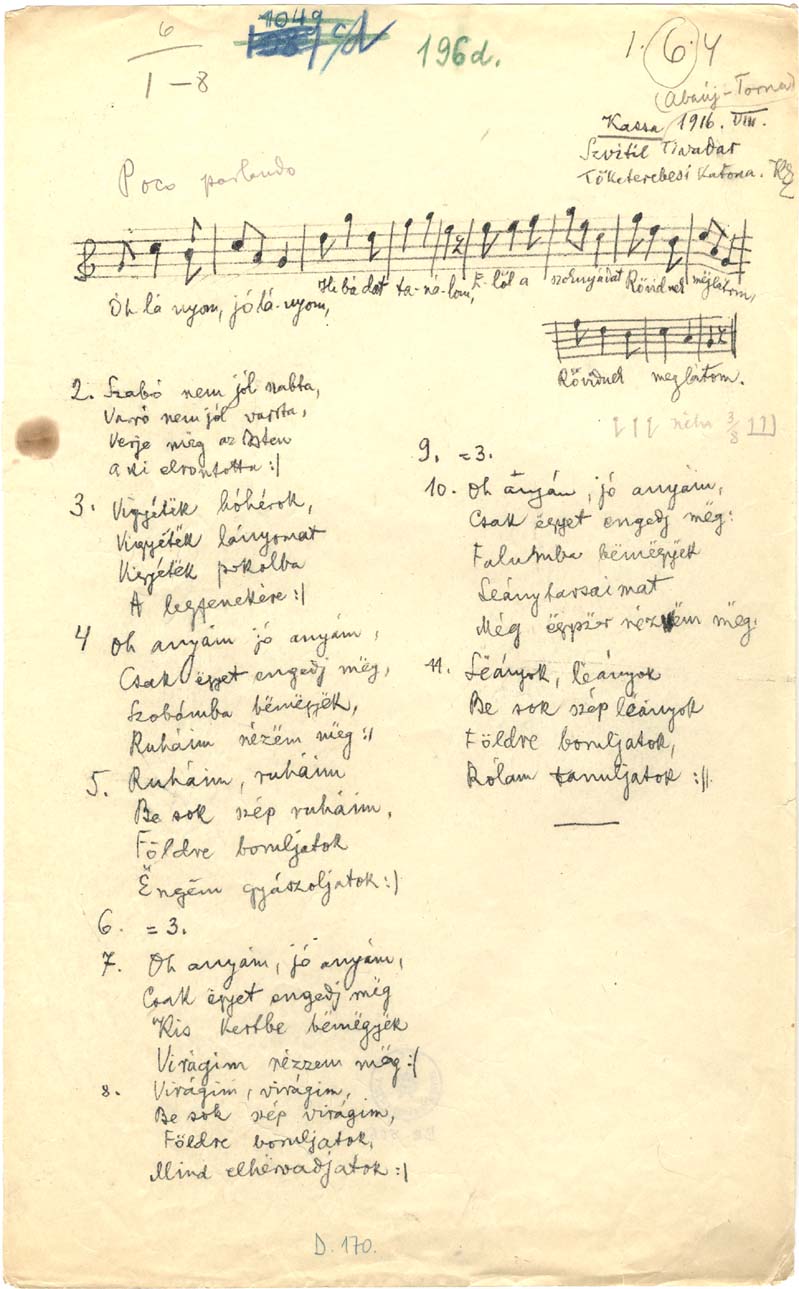 6
1–8
1049
196d.
1. 6. 4
(Abaúj-Torna)
Kassa 1916. VIII.
Szvitil Tivadar
Tőketerebesi katona.
Poco parlando
Óh lá nyom, jó lá-nyom,
Hi bádat ta-ná-lom,
E-löl a szoknyádat Rövidnek meglátom,
Rövidnek meglátom.
néha 3/8
2. Szabó nem jól szabta,
Varró nem jól varrta,
Verje mëg az Isten
a ki elrontotta :|
3. Vigyétëk hóhérok,
Vigyétëk lányomat
Vigyétëk pokolba
A legfenekére :|
4 Oh anyám jó anyám,
Csak ëgyet engedj mëg,
Szobámba bëmëgyëk,
Ruháim nézëm mëg :|
5. Ruháim, ruháim
Be sok szép ruháim,
Földre boruljatok
Ëngëm gyászoljatok :|
6. = 3.
7. Oh anyám, jó anyám,
Csak ëgyet engedj mëg
Kis kertbe bëmëgyëk
Virágim nézzem mëg :|
8. Virágim, virágim,
Be sok szép virágim,
Földre boruljatok,
Mind elhërvadjatok :|
9. = 3.
10. Oh anyám, jó anyám,
Csak ëgyet engedj mëg:
Falumba bëmëgyëk
Leánytarsaimat
Még ëgyszër nézzem mëg.
11. Lëányok, lëányok
Be sok szép lëányok
Földre boruljatok,
Rólam tanuljatok :||
D. 170.